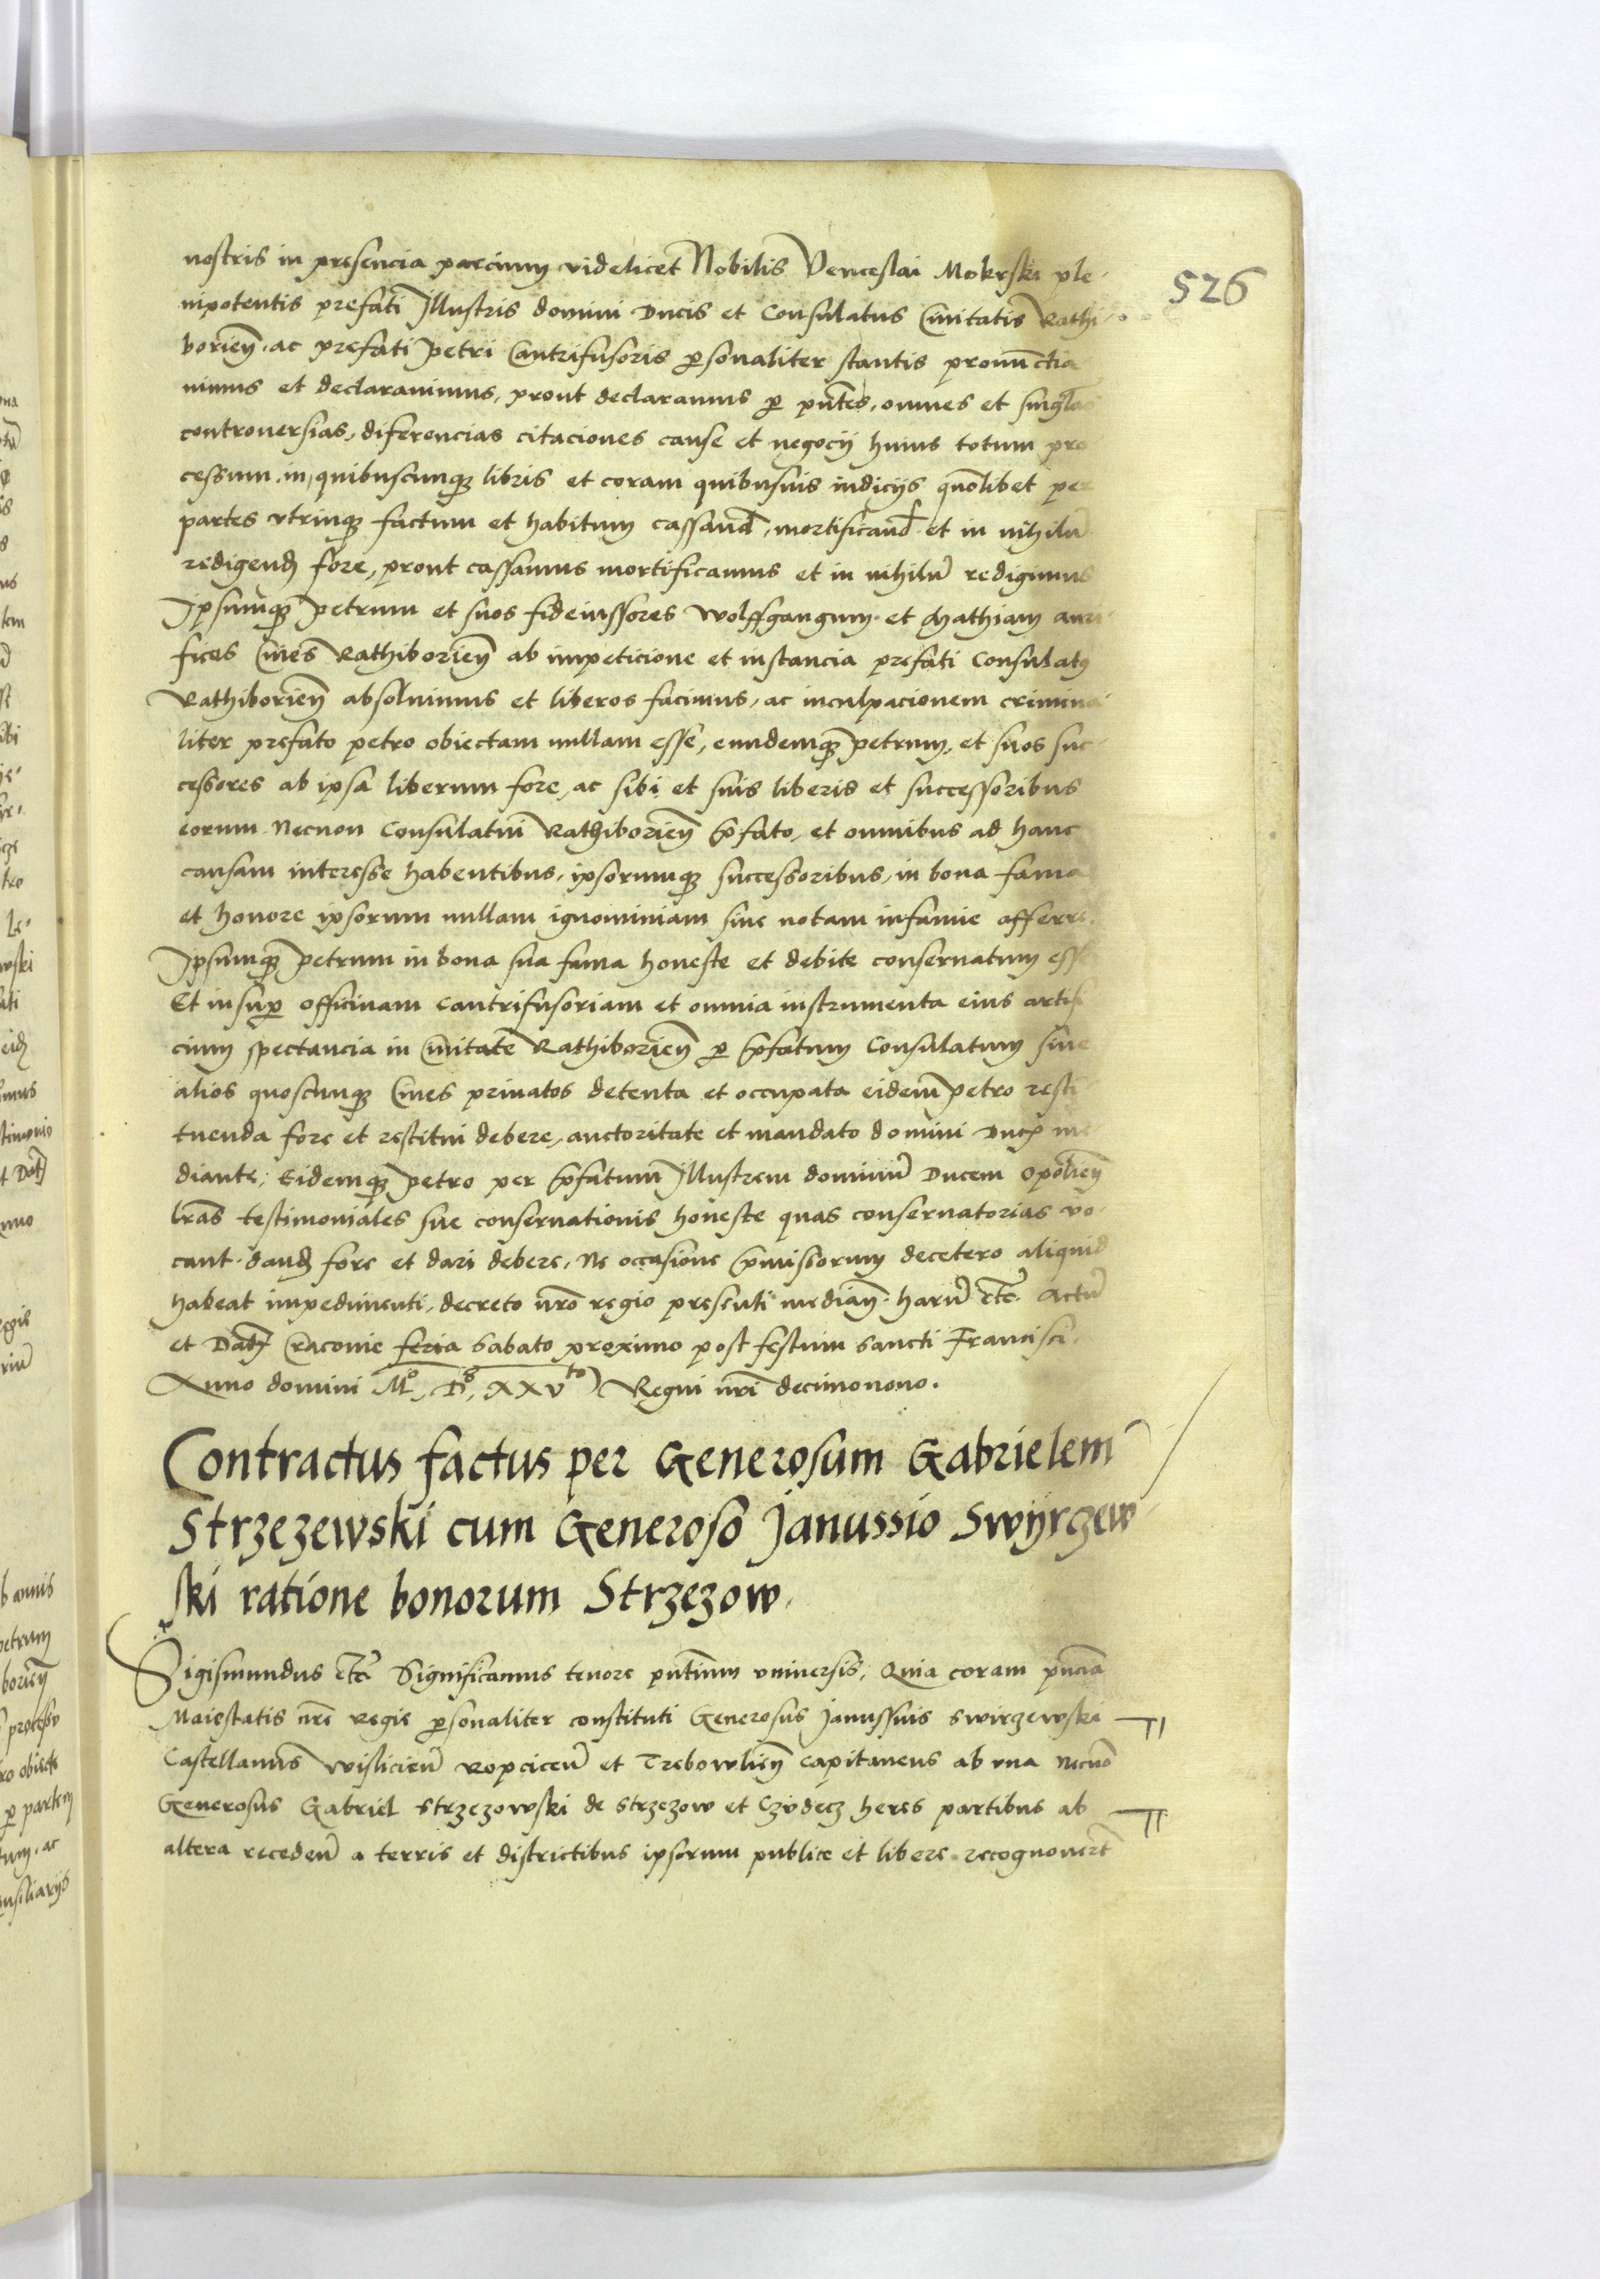 526
nostris in presencia parcium videlicet Nobilis Venceslai Mokrski ple-
nipotentis prefati Illustris domini Ducis et Consulatus Civitatis Rathi-
borien̄. ac prefati Petri Cantrifusoris p̱sonaliter stantis pronūnctia
vimus et declaravimus, prout declaramus p̱ pn̄tes, omnes et singlas
controversias, diferencias citaciones cause et negocij huius totum pro
cessum, in quibuscunqꝫ libris et coram quibusvis iudicijs quōlibet per
partes vtrinqꝫ factum et habitum cassand̄, mortificand̄ et in nihilū
redigend̄ fore, prout cassamus mortificamus et in nihilū redigimus
Ipsumqꝫ Petrum et suos fideiussores Wolffgangum et Mathiam auri
fices Cives Rathiborien̄ ab impeticione et instancia prefati Consulatꝰ
Rathiborien̄ absolvimus et liberos facimus, ac inculpacionem crimina
liter prefato Petro obiectam nullam esse, eundemqꝫ Petrum, et suos suc-
cessores ab ipsa liberum fore, ac sibi et suis liberis et successoribus
eorum Necnon Consulatui Rathiborien̄ p̄fato, et omnibus ad hanc
causam interesse habentibus, ipsorumqꝫ successoribus, in bona fama
et honore ipsorum nullam ignominiam sive notam infamie afferre.
Ipsumqꝫ Petrum in bona sua fama honeste et debite conservatum esse
Et insup̱ officinam Cantrifusoriam et omnia instrumenta eius artifi
cium spectancia in Civitate Rathiborien̄ p̱ p̄fatum Consulatum sive
alios quoscunqꝫ Cives privatos detenta et occupata eidem Petro resti
tuenda fore et restitui debere, auctoritate et mandato domini Ducis me
diante; Eidemqꝫ Petro per p̄fatum Illustrem dominū Ducem Opolien̄
lr̄as testimoniales sue conservationis honeste quas conservatorias vo-
cant. dand̄ fore et dari debere, Ne occasione p̄missorum decetero aliquid
habeat impedimenti, decreto nr̄o regio presenti median̄. harū etc̄. Actū
et Dat̄ Cracovie feria Sabato proximo post festum sancti Francisci.
Anno domini Mº, Dº, XXVto Regni nr̄i decimonono.
Contractus factus per Generosum Gabrielem
Strzezewski cum Generoso Janussio Swyrzew
ski ratione bonorum Strzezow.
Sigismundus etc̄ Significamus tenore pn̄tium vniversis, Quia coram pn̄cia
Maiestatis nr̄e Regie p̱sonaliter constituti Generosus Janussius Swirzewski
Castellanus Wislicien̄ Ropcicen̄ et Trebowlien̄ Capitaneus ab vna necnō
Generosus Gabriel Strzezowski de Strzezow et Czudecz heres partibus ab
altera receden̄ a terris et districtibus ipsorum publice et libere recognoverūt